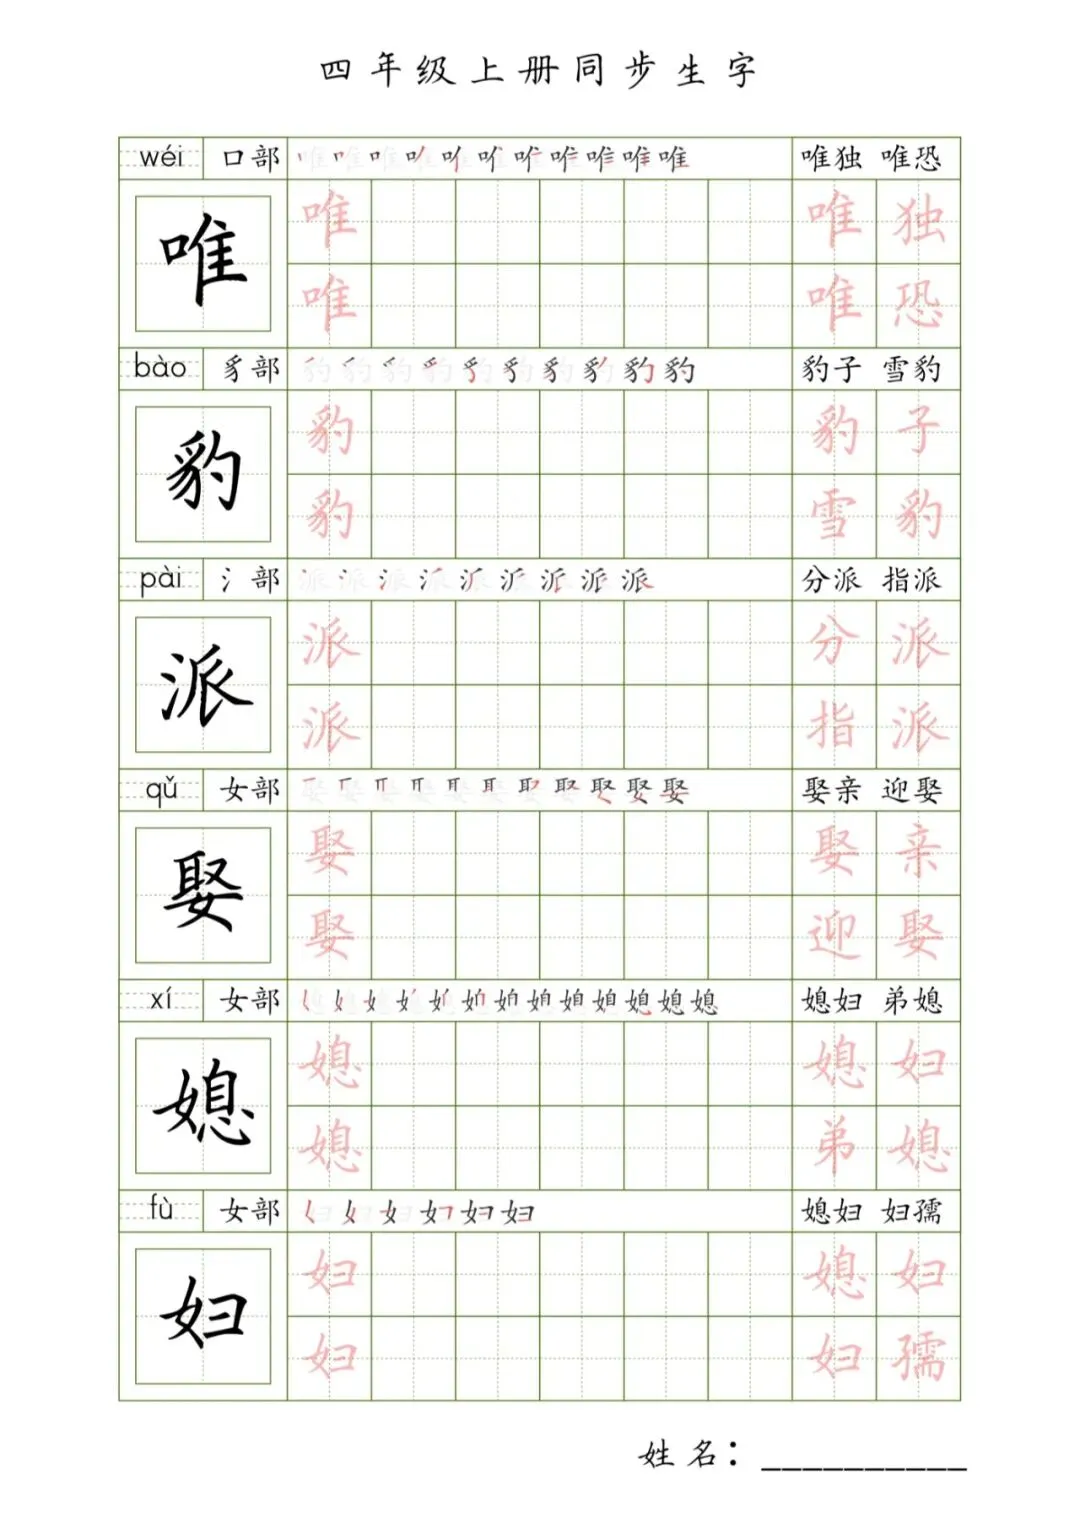 四年级上册同步生字
wéi 口部 唯独 唯恐
唯 唯 唯 独
唯 唯 恐
bào 豸部 豹子 雪豹
豹 豹 豹 子
豹 雪 豹
pài 氵部 分派 指派
派 派 分 派
派 指 派
qǔ 女部 娶亲 迎娶
娶 娶 娶 亲
娶 迎 娶
xí 女部 媳妇 弟媳
媳 媳 媳 妇
媳 弟 媳
fù 女部 媳妇 妇孺
妇 妇 媳 妇
妇 妇 孺
姓名：__________